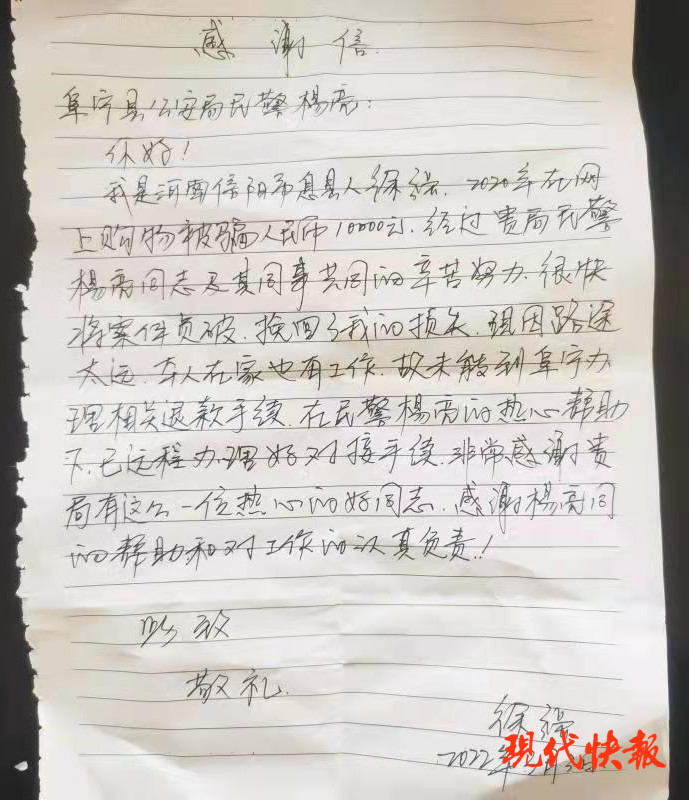 感谢信
阜宁县公安局民警杨亮:
你好!
我是河南信阳市息县人徐强.2020年在网
上购物被骗人民币10000元.经过贵局民警
杨亮同志及其同事共同的辛苦努力.很快
将案件侦破.挽回了我的损失.现因路途
太远.本人在家也有工作.故未能到阜宁办
理相关退款手续.在民警杨亮的热心帮助
下.已远程办理好对接手续.非常感谢贵
局有这么一位热心的好同志.感谢杨亮同
的帮助和对工作的认真负责!
此致
敬礼.
徐强
2022年
现代快报